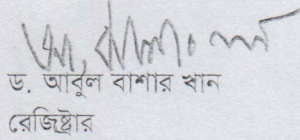 ড. আবুল বাশার খান
রেজিষ্ট্রার